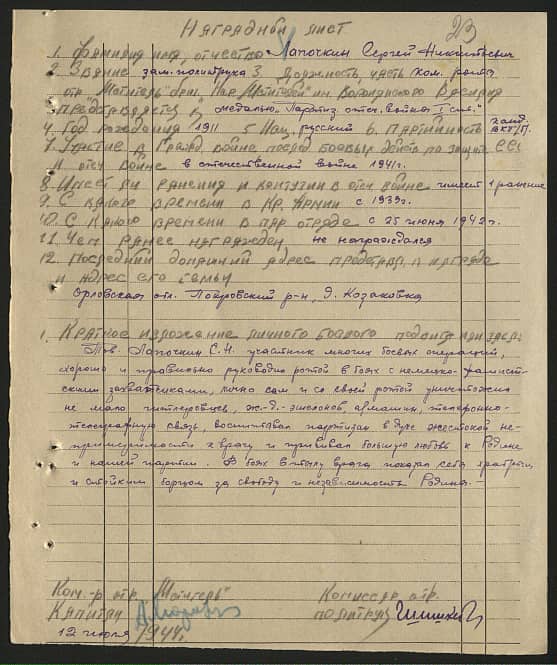 Наградной лист
1. Фамилия имя, отчество Лапочкин Сергей Никитович
2. Звание зам. политрука 3. Должность, часть ком. роты
отр. "Мститель" им. Воронянского
Представляется к медалью "Партиз. отеч. войны I ст."
4. Год рождения 1911 5 Нац. русский 6. Партийность канд. ВКП/б/.
7. Участие в Гражд. войне после боевых действ по защите СССР
и отеч войне в отечественной войне 1941г.
8. Имеет ли ранения и контузии в отеч войне имеет 1 ранение
9. С какого времени в Кр. Армии с 1939г.
10. С какого времени в пар отряде с 25 июня 1942г.
11. Чем ранее награжден не награждался
12. Последний домашний адрес представл. к награде
и адрес его семьи
Орловская обл. Покровский р-н, д. Козаковка
1. Краткое изложение личного боевого подвига или засл:
Тов. Лапочкин С.Н. участник многих боевых операций,
хорошо и правильно руководил ротой в боях с немецко-фашист-
скими захватчиками, лично сам и со своей ротой уничтожено
не мало гитлеровцев, ж.-д.-эшелонов, автомашин, телефонно-
телеграфную связь, воспитывал партизан в духе жестокой не-
примиримости к врагу и прививал большую любовь к Родине
и нашей партии. В боях в тылу врага показал себя храбрым
и стойким борцом за свободу и независимость Родины.-
Ком-р отр. "Мститель"
Комиссар отр.
Капитан
политрук
12 июля 1944г.